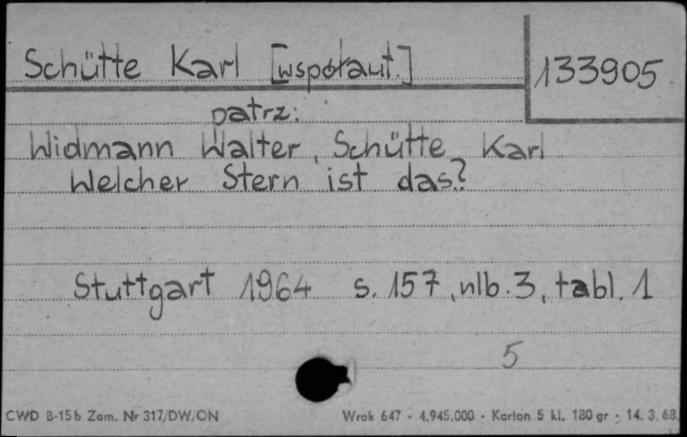 Schütte Karl [współaut.]
133905
patrz:
Widmann Walter, Schütte Karl
Welcher Stern ist das?
Stuttgart 1964 s. 157, nlb. 3, tabl. 1
5
CWD B-15b Zam. Nr 317/DW/ON
Wrok 647 - 4.945.000 - Karton 5 kl. 180 gr - 14. 3. 68.